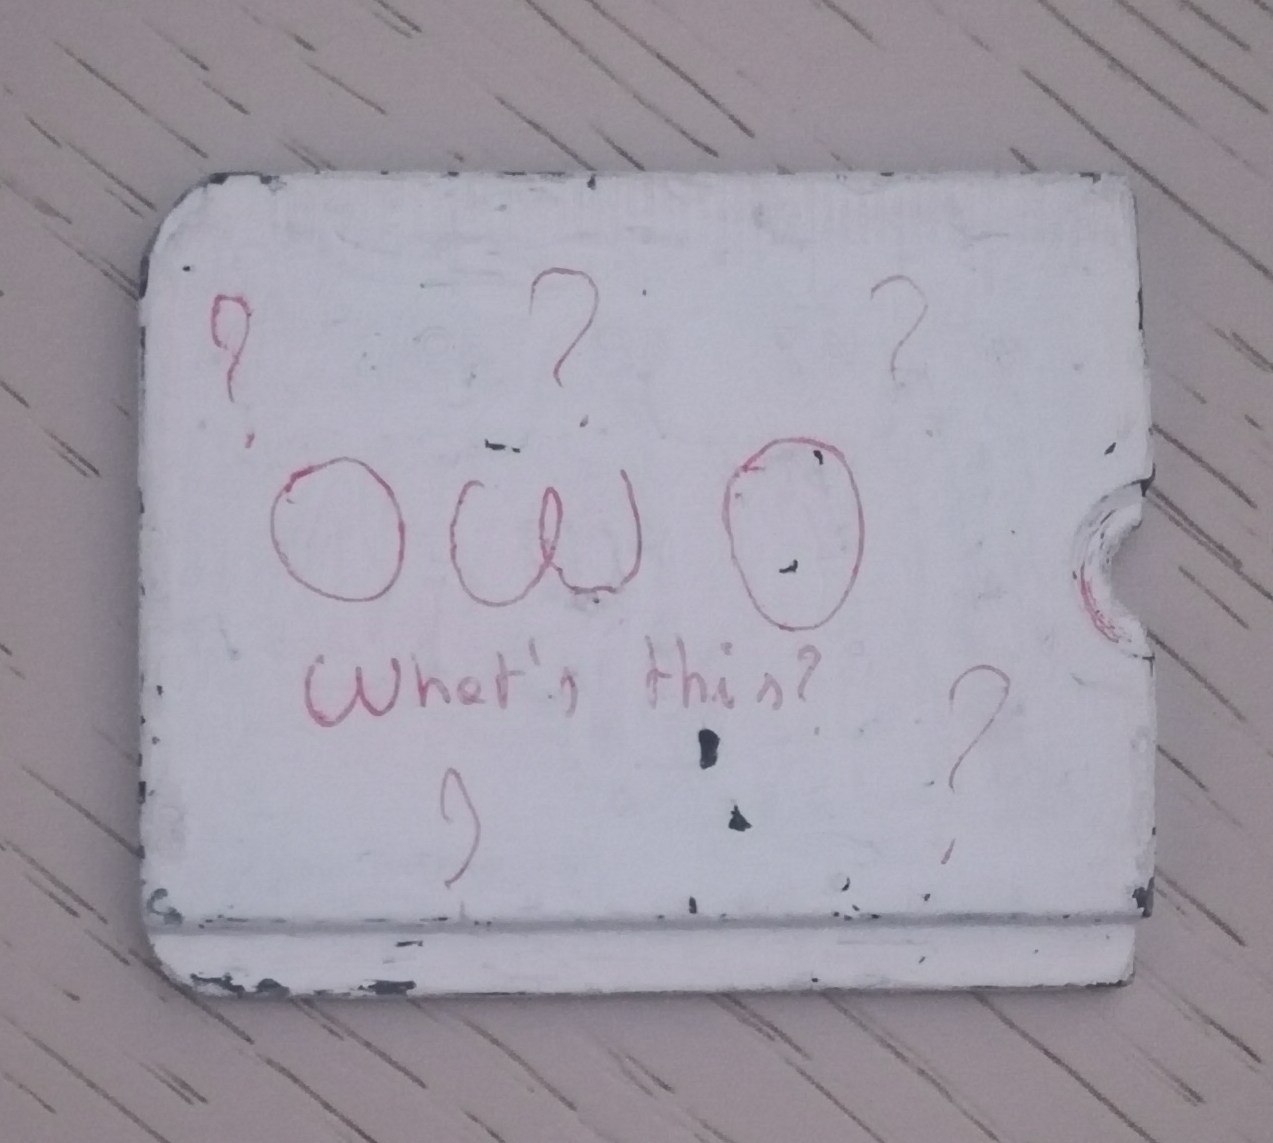 ? ? ?
OwO
What's this?
?
?